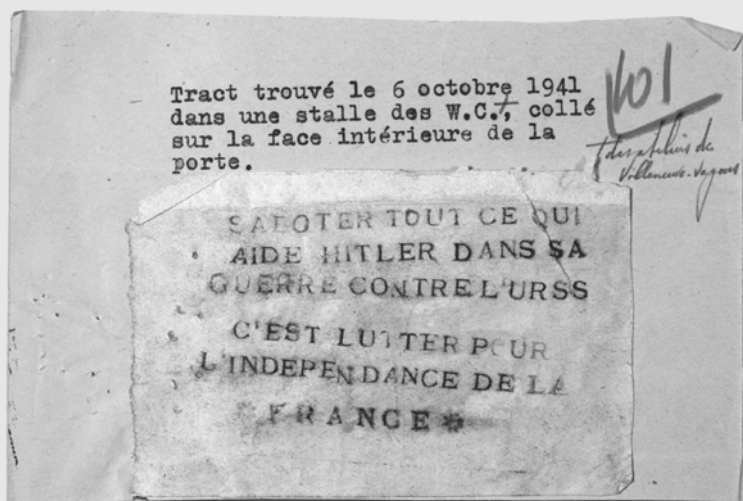 Tract trouvé le 6 octobre 1941
dans une stalle des W.C., collé
sur la face intérieure de la
porte.
401
des ateliers de
Villeneuve-Wagons
SABOTER TOUT CE QUI
AIDE HITLER DANS SA
GUERRE CONTRE L'URSS
C'EST LUTTER POUR
L'INDEPENDANCE DE LA
* FRANCE *